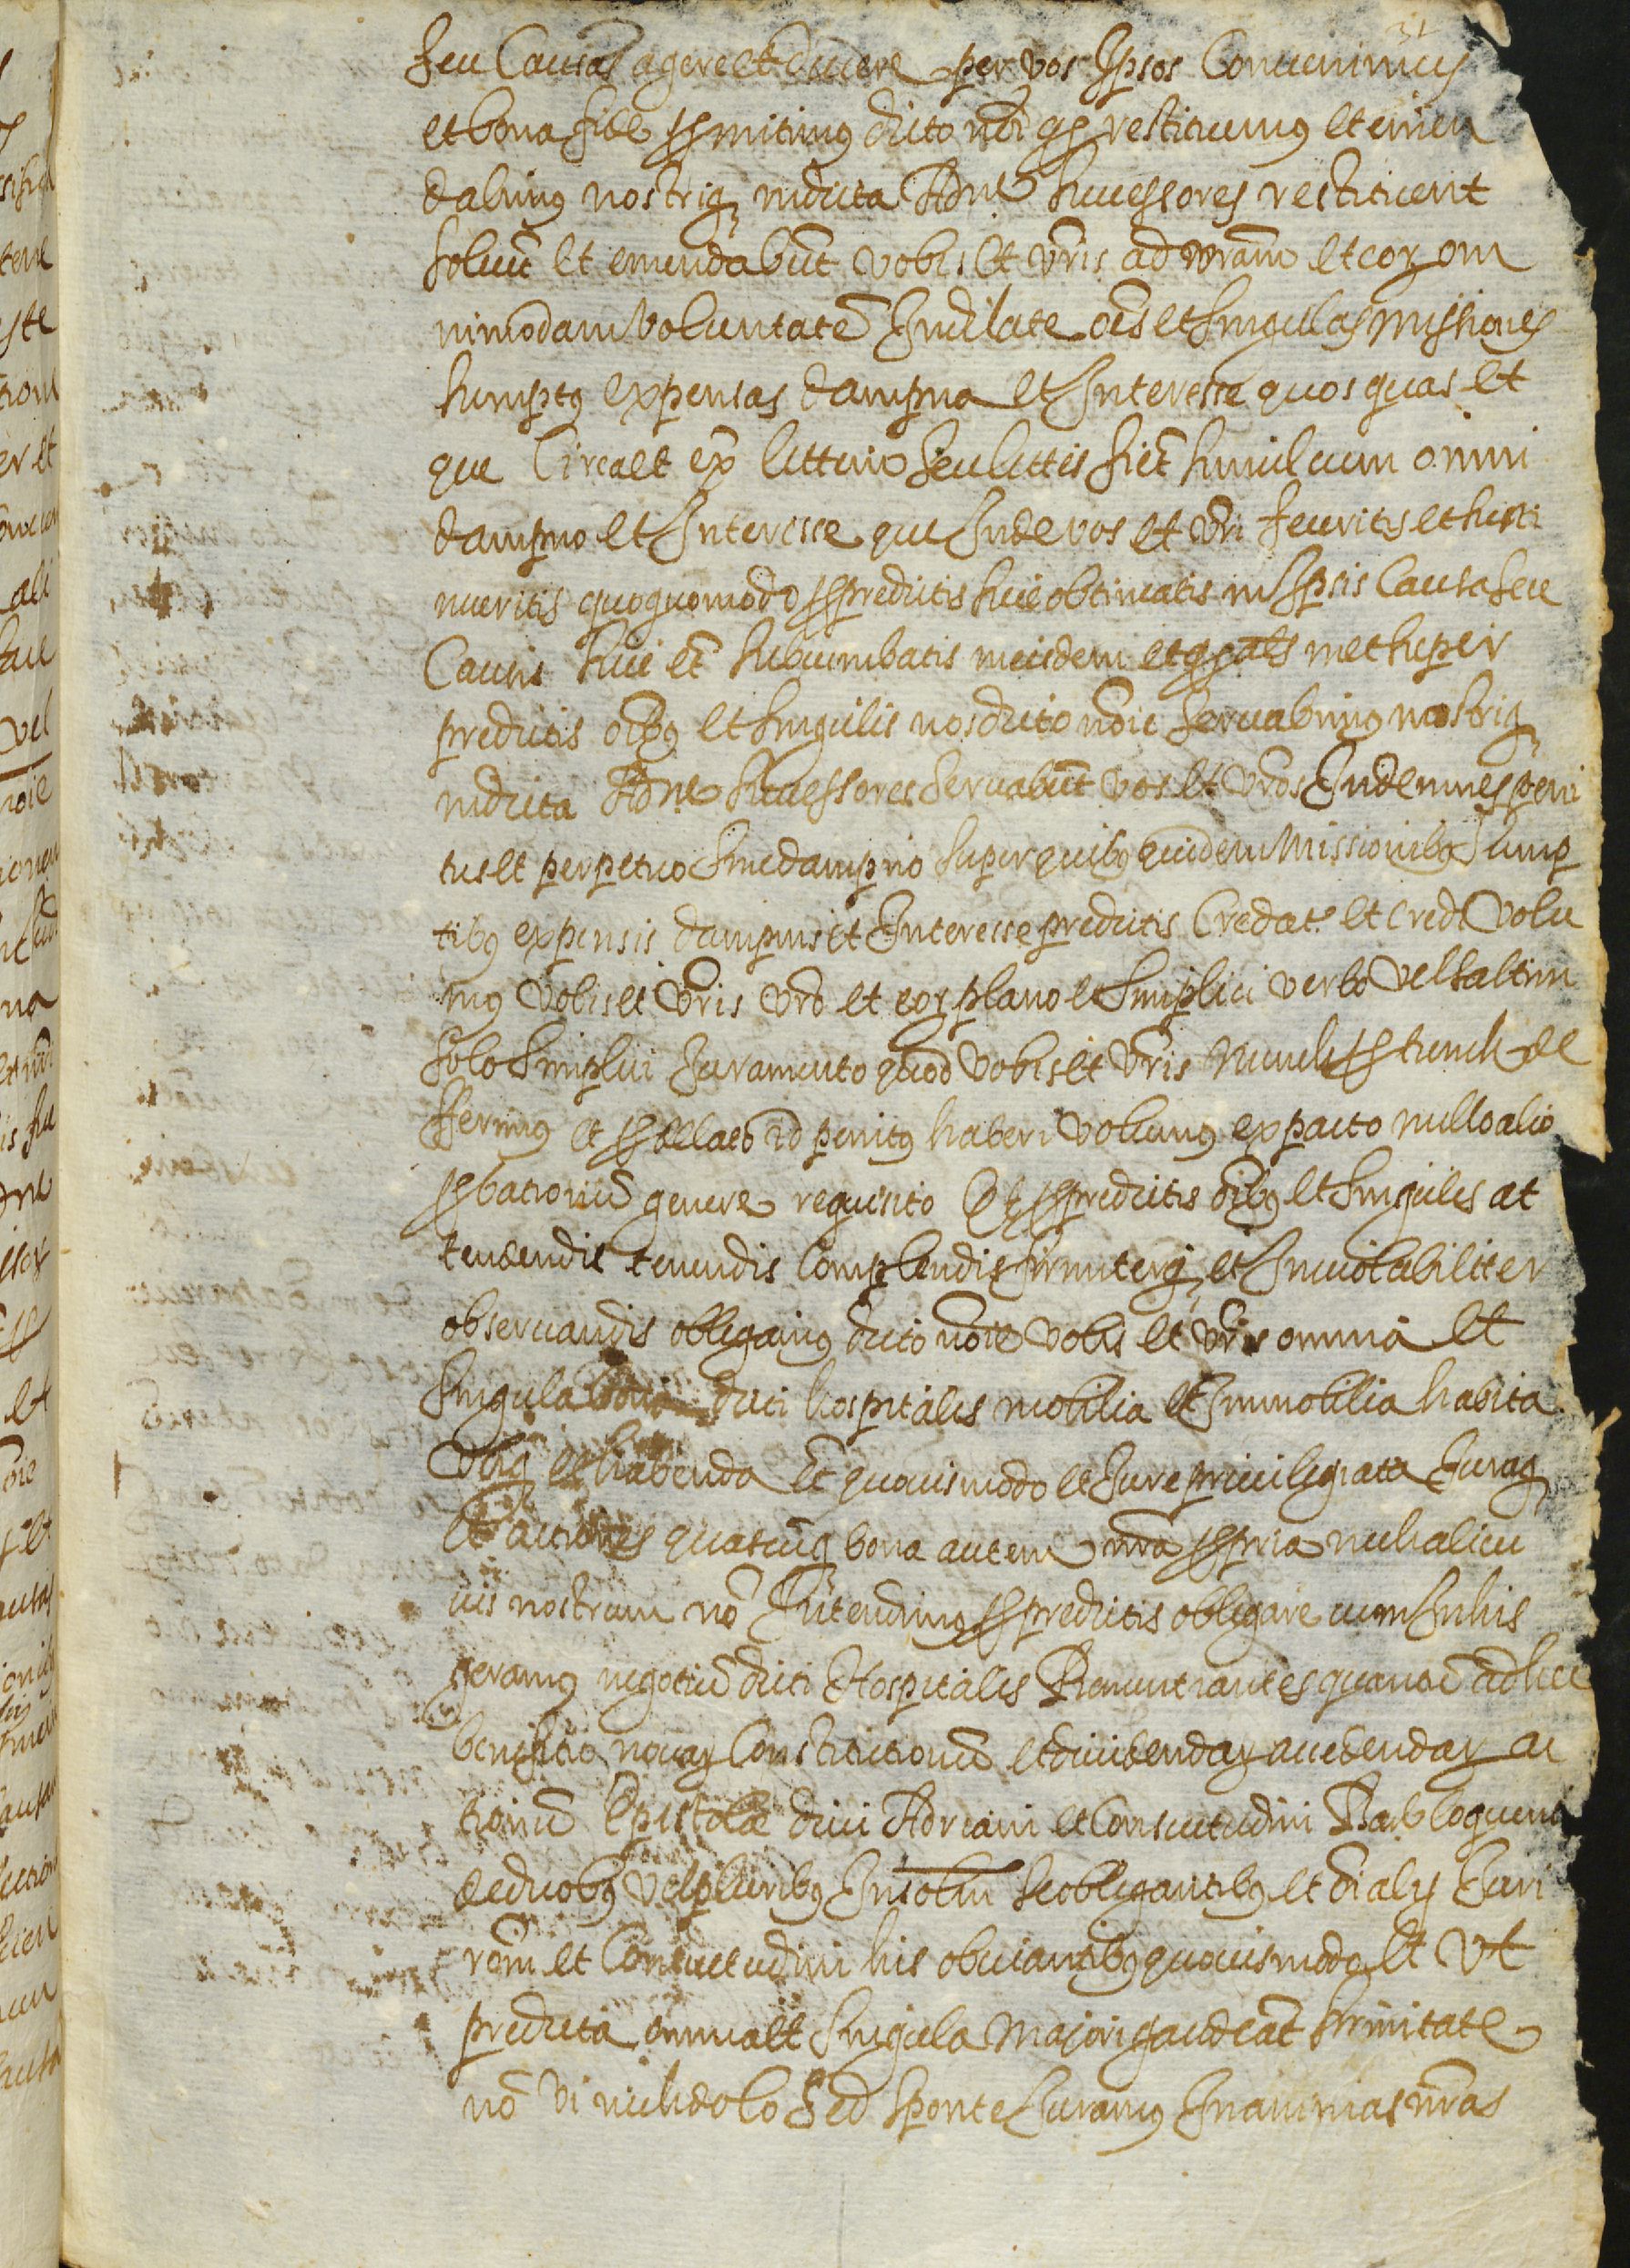 31
seu Causas agere et ducere per vos Ipsos Convenimus
et bona fide promitimus dicto nōi qs restituemus et emen
dabimus nostriq in dicta Adne successores restituent
solvēt et emendabūt vobis et vr̄is ad vr̄am et eoꝝ om
nimodam voluntatē Indilate oēs et singulas missiones
sumptus expensas dampna et Interesse quos quas et
que Circa et ex littium seu littis fiēt simul cum omni
dampno et Interesse que Inde vos et vr̄i feceritis et susti
nueritis quoquomodo pro predictis sive obtineatis in Ipsis Causa seu
Causis sive et̄ subcumbatis in eisdem et
predictis oībus et singulis nos dicto nōie servabimus nostriq
in dicta Adne successores servabūt vos et vr̄os Indemnes peni
tus et perpetuo sine dampno super quibus quidem Missionibus Sump
tibus expensis dampnis et Interesse predictis Credat. et Credi volu
mus vobis et vr̄is vr̄o et eoꝝ plano et simplici verbo vel saltim
solo simplici Juramento quod vobis et vr̄is nunch pro tunch de
fferimus et pro dellato id penitus haberi volumus ex pacto nullo alio
probationū genere requisito Et pro predictis oībus et singulis at
tendendis tenendis Complendis firmiterq et Inviolabiliter
observandis obligamus dicto nōie vobis et vr̄is omnia et
singula bona dicti hospitalis mobilia et Immobilia habita
Ubiq et habenda Et̄ quovismodo et Jure privilegiata Juraq
et actiones quascūq bona autem nr̄a propria nech alicu
ius nostrum nō Intendimus pro predictis obligare cum In his
geramus negotiū dicti Hospitalis Renuntiantes quantū ad hec
beneficio novaꝝ Constitutionū et dividendaꝝ accedendaꝝ ac
tionū Epistole divi Adriani et Consuetudini Barb loquenti
de duobus vel pluribus Insolin se obligantibus et oī alij Juri
rōni et Consuetudini his obviantibus quovismodo Et Ut
predicta omnia et singula Majori gaudeāt firmitate
nō vi nech dolo Sed sponte Juramus In animas nr̄as